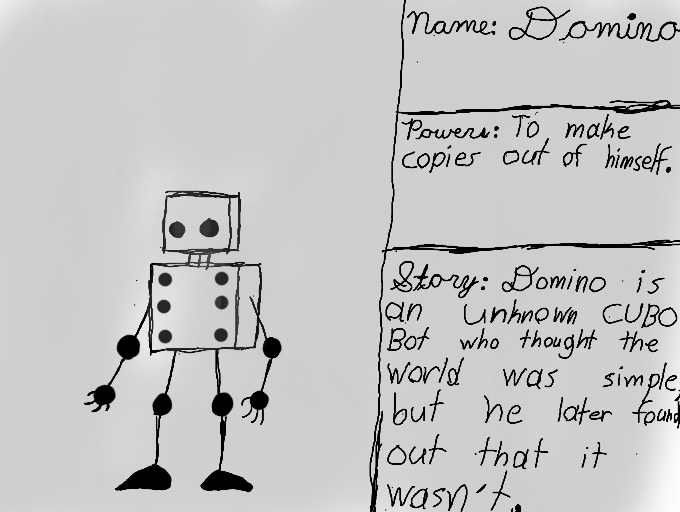 Name: Domino
Powers: To make
copies out of himself.
Story: Domino is
an unknown CUBO
Bot who thought the
world was simple,
but he later found
out that it
wasn't.